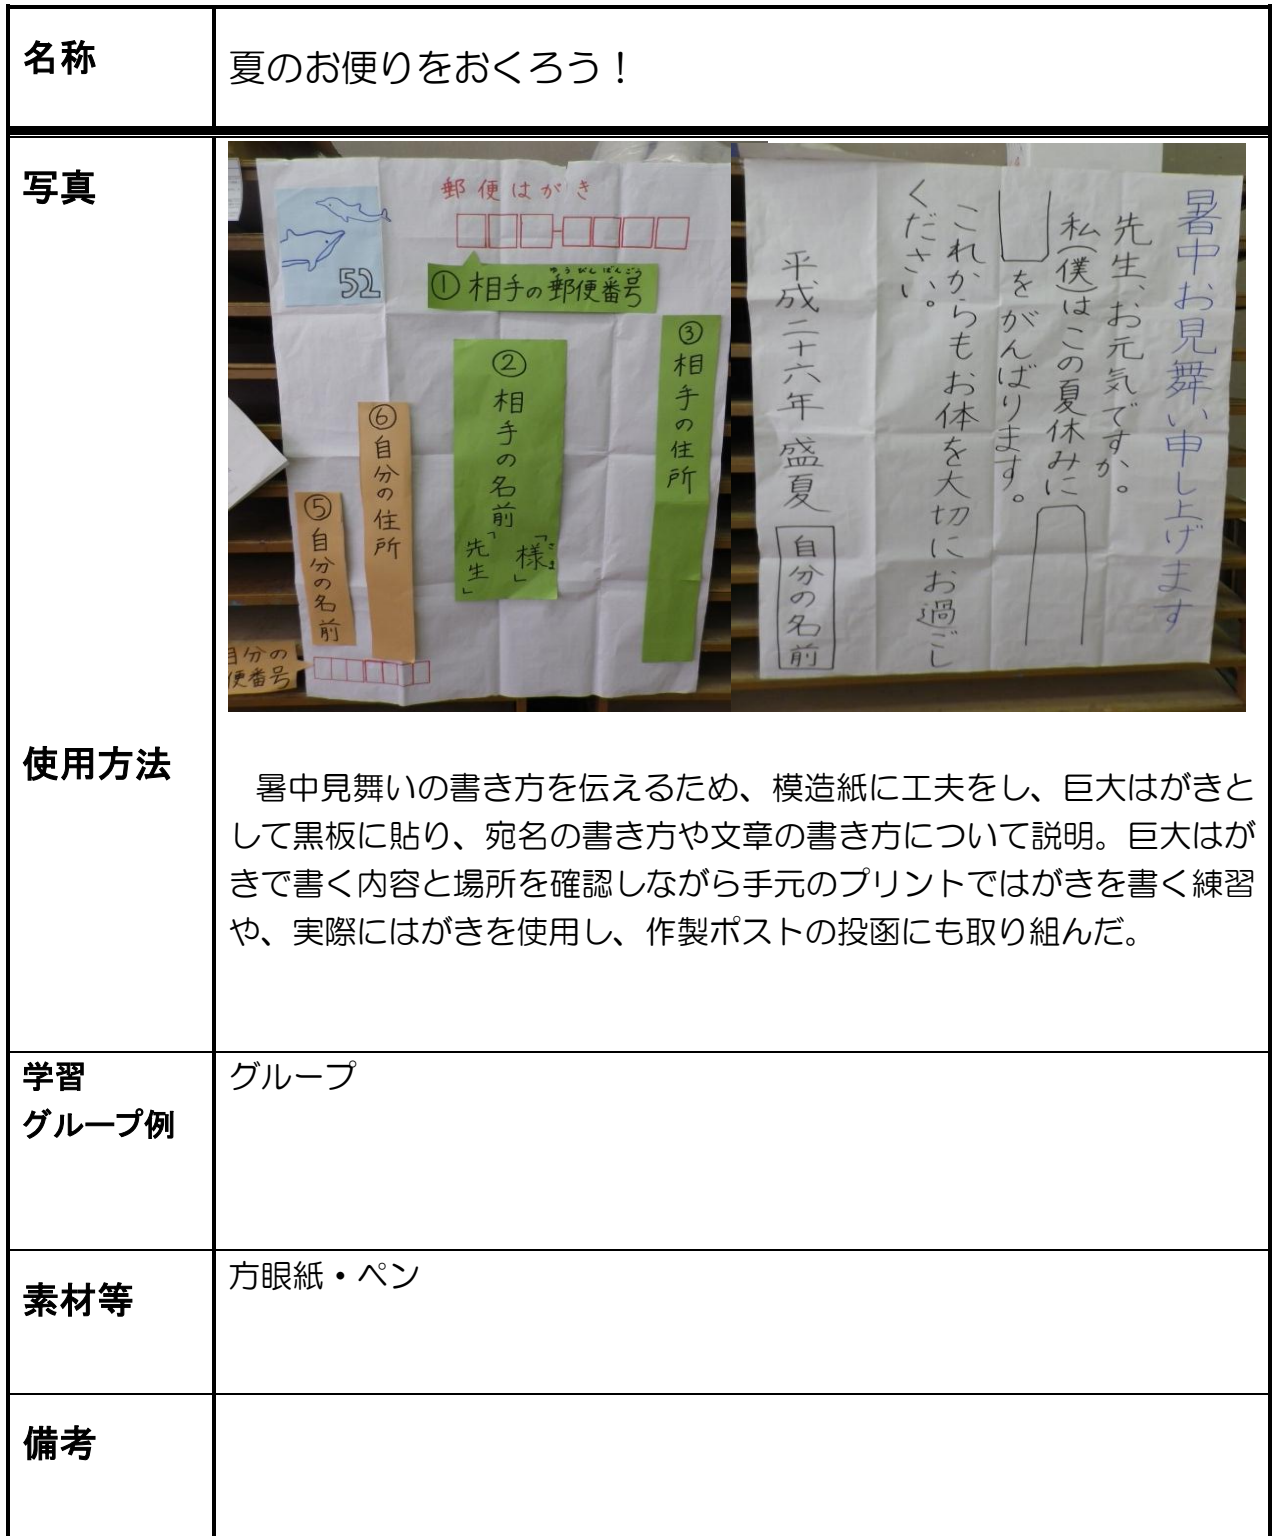 名称
夏のお便りをおくろう！
写真
郵便はがき
52
ゆうびんばんごう
①相手の郵便番号
③相手の住所
②相手の名前
さま
「様」
「先生」
⑥自分の住所
⑤自分の名前
自分の
便番号
暑中お見舞い申し上げます
先生、お元気ですか。
私(僕)はこの夏休みに
をがんばります。
これからもお体を大切にお過ごし
ください。
平成二十六年 盛夏 自分の名前
使用方法
暑中見舞いの書き方を伝えるため、模造紙に工夫をし、巨大はがきと
して黒板に貼り、宛名の書き方や文章の書き方について説明。巨大はが
きで書く内容と場所を確認しながら手元のプリントではがきを書く練習
や、実際にはがきを使用し、作製ポストの投函にも取り組んだ。
学習
グループ例
グループ
素材等
方眼紙・ペン
備考